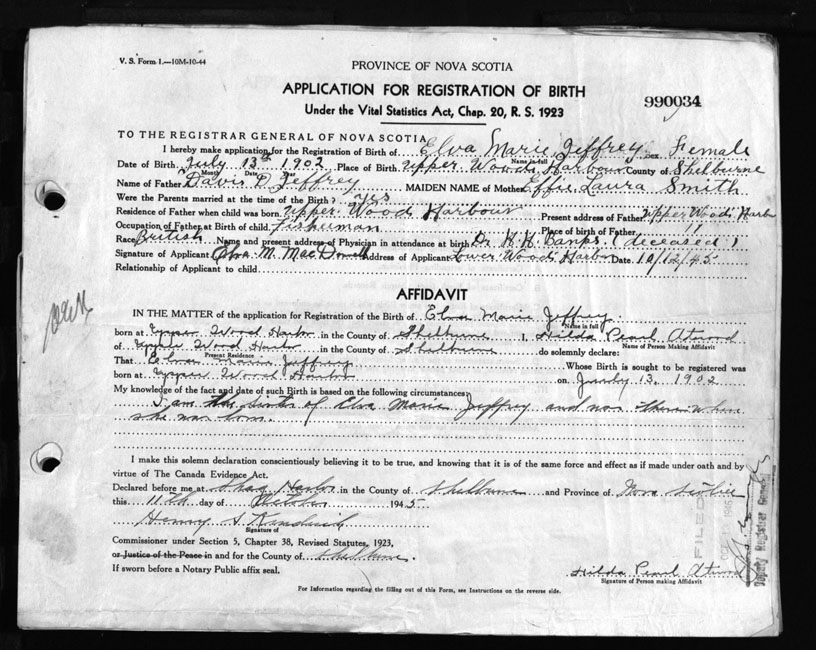 V. S. Form 1.—10M-10-44
PROVINCE OF NOVA SCOTIA
APPLICATION FOR REGISTRATION OF BIRTH
Under the Vital Statistics Act, Chap. 20, R. S. 1923
990034
TO THE REGISTRAR GENERAL OF NOVA SCOTIA
I hereby make application for the Registration of Birth of Elva Marie Jeffrey Sex Female
Name in full
Date of Birth July 13th 1902 Place of Birth Upper Woods Harbour County of Shelburne
Month Date Year
Name of Father Davis D. Jeffrey MAIDEN NAME of Mother Effie Laura Smith
Were the Parents married at the time of the Birth? yes
Residence of Father when child was born Upper Wood Harbour Present address of Father Upper Woods Harbr
Occupation of Father at Birth of child Fisherman Place of birth of Father " "
Race British Name and present address of Physician in attendance at birth Dr. H. H. Banks. (deceased)
Signature of Applicant Elva M. MacDonell Address of Applicant Lower Woods Harbor Date 10/12/45
Relationship of Applicant to child
AFFIDAVIT
IN THE MATTER of the application for Registration of the Birth of Elva Marie Jeffrey.
Name in full
born at Upper Wood Harbor in the County of Shelburne I, Hilda Pearl Atwood
Name of Person Making Affidavit
of Upper Wood Harbor in the County of Shelburne do solemnly declare:
Present Residence
That Elva Marie Jeffrey Whose Birth is sought to be registered was
born at Upper Wood Harbor on July 13, 1902
My knowledge of the fact and date of such Birth is based on the following circumstances:
I am the of Elva Marie Jeffrey and was there when
she was born.
I make this solemn declaration conscientiously believing it to be true, and knowing that it is of the same force and effect as if made under oath and by
virtue of The Canada Evidence Act.
Declared before me at Shag Harbor in the County of Shelburne and Province of Nova Scotia
this 11th day of October 1945
Henry A. Kendrick
Signature of
Commissioner under Section 5, Chapter 38, Revised Statutes, 1923,
or Justice of the Peace in and for the County of Shelburne.
If sworn before a Notary Public affix seal.
Hilda Pearl Atwood
Signature of Person making Affidavit
For Information regarding the filling out of this Form, see Instructions on the reverse side.
FILED
Deputy Registrar General